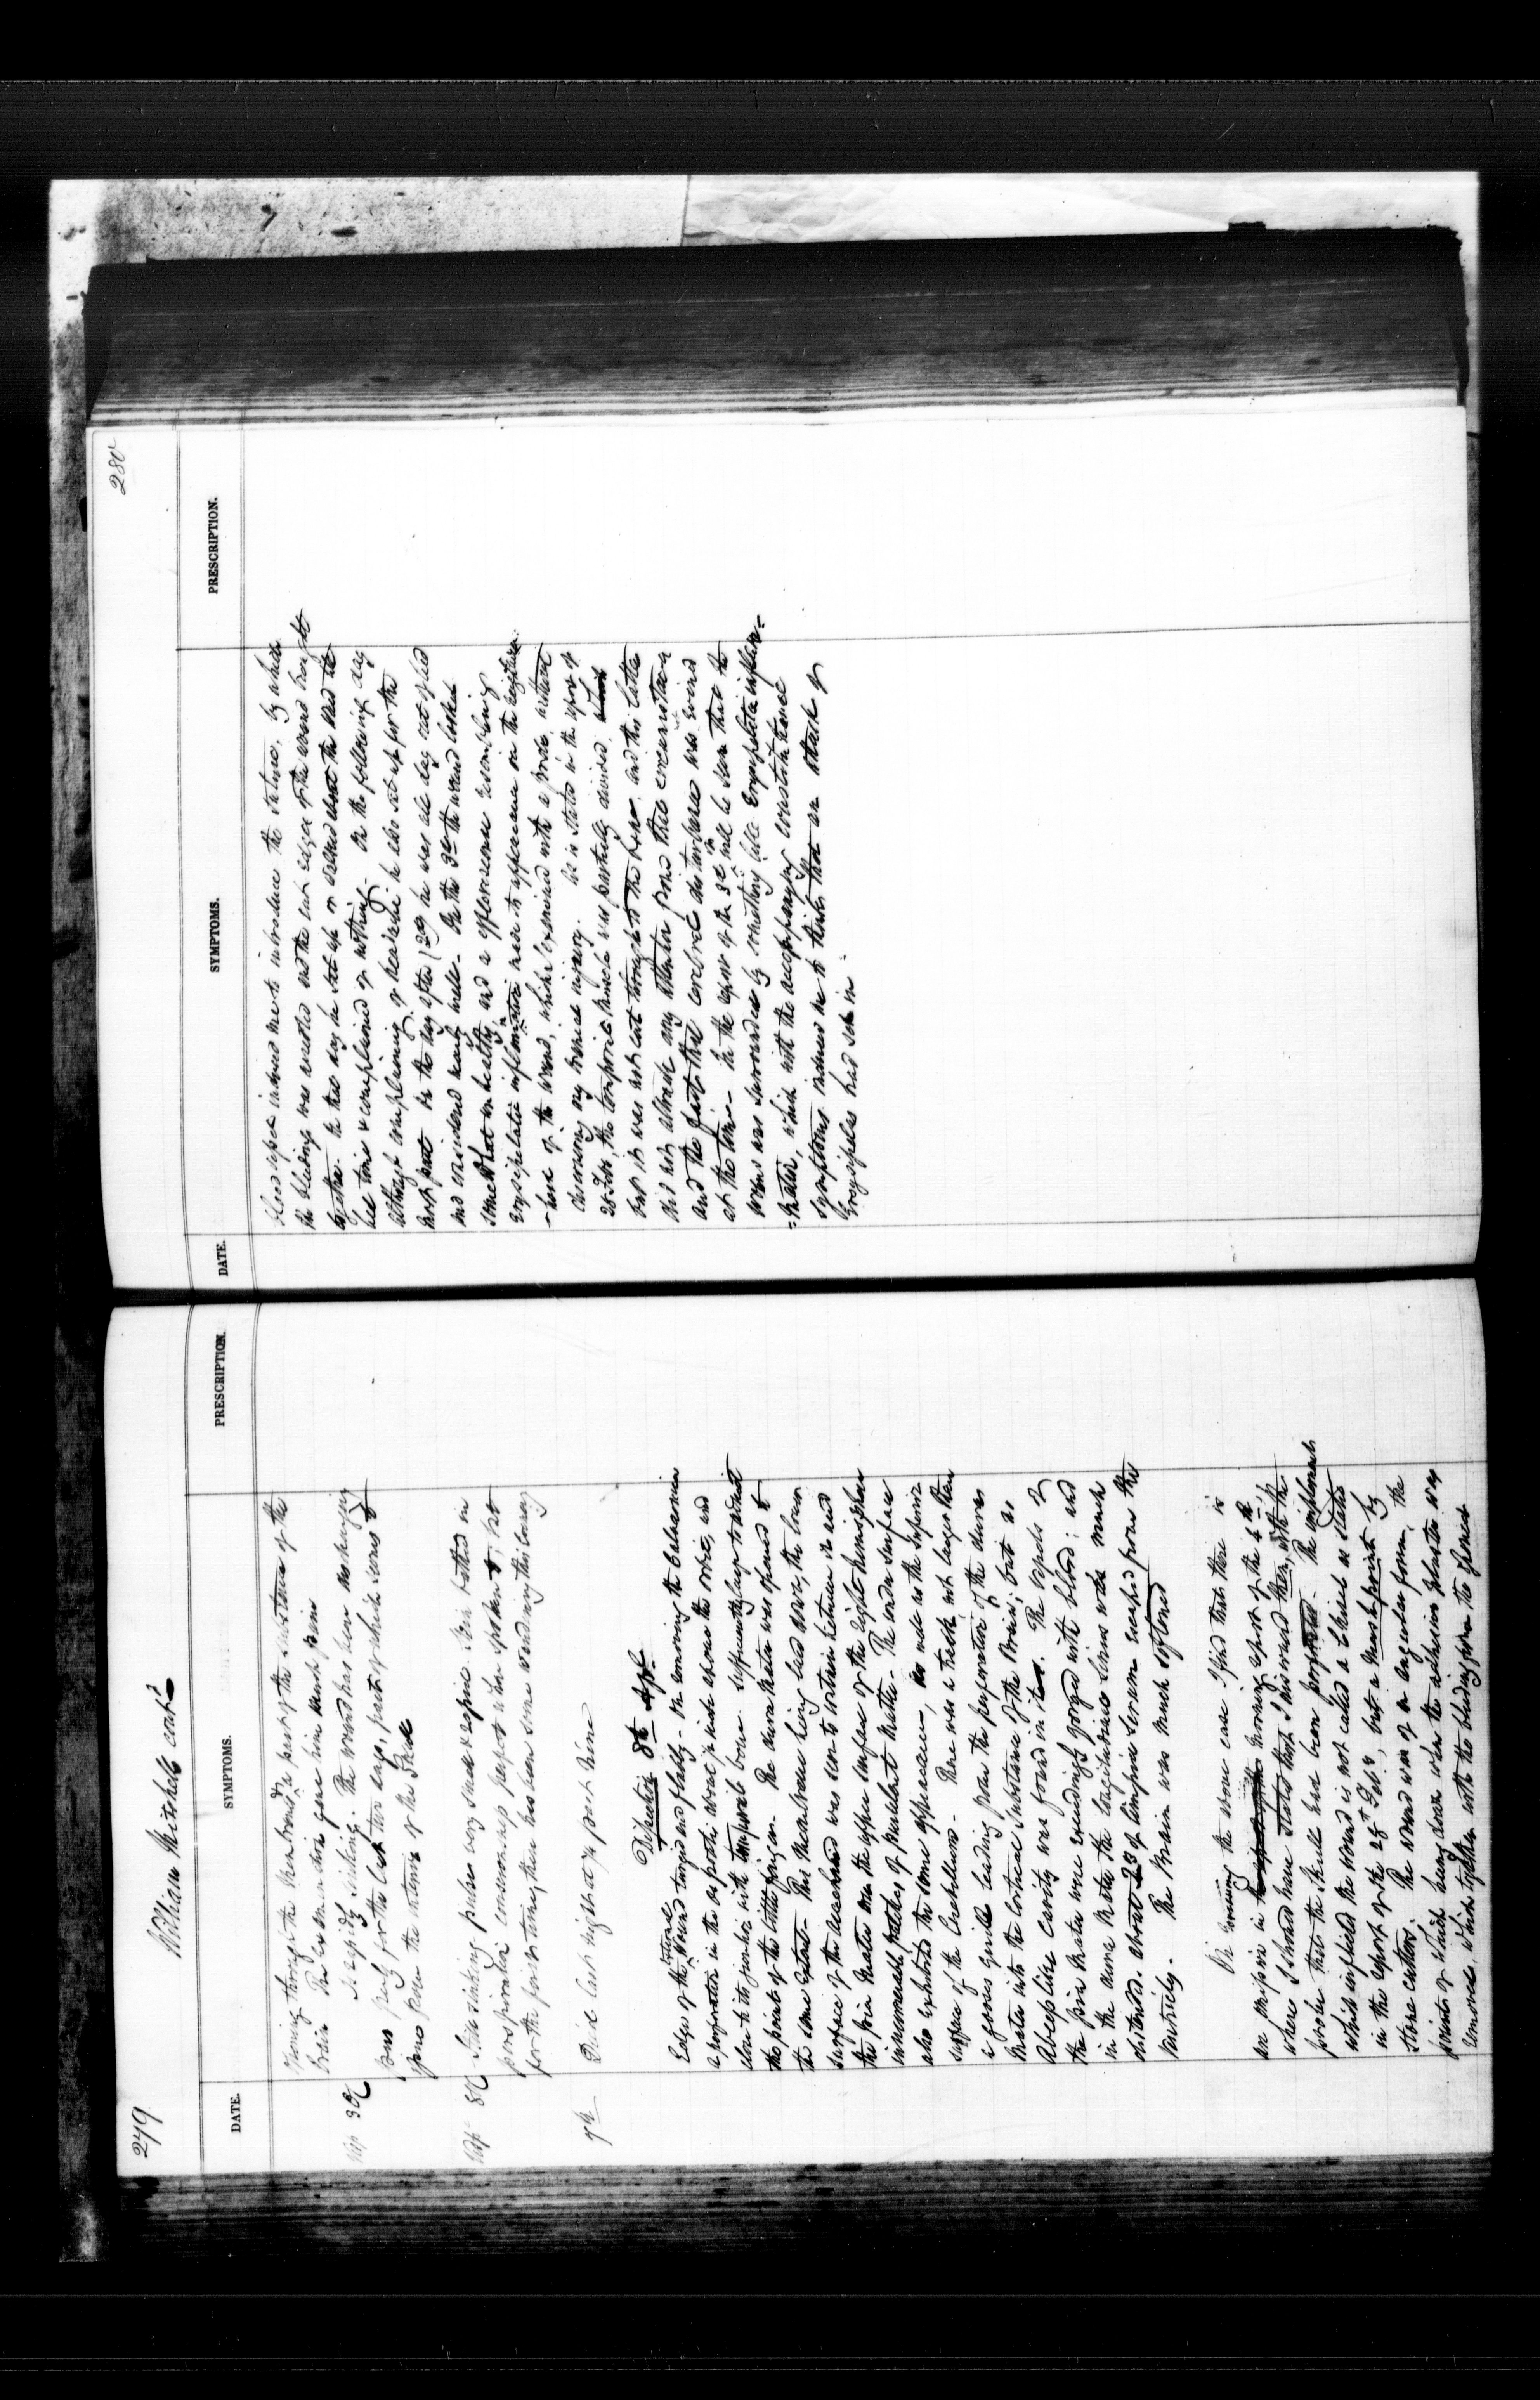 249
William Mitchell cont^d
DATE. SYMPTOMS. PRESCRIPTION.
through the membranes & part of the substance of the
brain The examination gave him much pain
Sep 3^d Is rapidly sinking. The wound has been discharging
pus freely for the last two days, part of which comes
from the interior of the Head
Sep 8^th Is sinking pulse very small & rapid. Skin bathed in
perspiration consciousness perfect when spoken to, but
for the first time, there has been some wandering this evening
9^th Died last night at ½ past nine
Dissection 8^th Sept
Edges of the external wound turgid and flabby. On removing the Calvarium
a perforation in the os frontis about ½ inch above the orbit, and
close to its junction with temporal bone sufficiently large to admit
the point of the little finger. The dura mater was opened to
the same extent. This membrane being laid down, the lower
surface of the arachnoid was seen to contain between it and
the pia mater over the upper surface of the right hemisphere
innumerable patches of purulent matter. The under surface
also exhibited the same appearance, as well as the superior
surface of the Cerebellum. There was a track, not larger than
a goose quill leading from the perforation of the dura
mater into the cortical substance of the Brain; but no
Abcess like cavity was found in it. The vessels of
the pia mater were exceedingly gorged with blood; and
in the dura mater the longitudinal sinus was much
distended. about of limpid serum escaped from the
ventricles. The Brain was much softened
On revising the above case I find that there is
an omission in morning report of the 4^th
where I should have stated that I discovered then, with the
probe that the skull had been perforated. The implement
which inflicted the wound is not called a chisel as stated
in the report of the 28^th Feb^y, but a mash point by
stone cutters. The wound was of an angular form, the
points of which being drawn when the adhesive plaster was
removed, which together with the bleeding from the
280
DATE. SYMPTOMS. PRESCRIPTION.
induced me to introduce the sutures, by which
the bleeding was arrested and the cut edges of the wound brought
together. On that day he sat up or walked about the Ward the
whole time & complained of nothing. On the following day
although complaining of headache he also sat up for the
most part. On the day after (2^d) he was all day out of bed
and considered nearly well. On the 3^d the wound looked
somewhat unhealthy, and a efflorescence resembling
erysipelatic inflammation made its appearance in the neighbour
-hood of the wound, which I examined with a probe, without
discovering any osseous injury. As is stated in the report of
28 Feb, the temporal muscle was partially divided,
but it was not cut through to the bone, and this latter
did not attract any attention from that circumstance
and the fact that cerebral disturbance was
at the time. In the report of the 3^d it will be seen that the
wound was surrounded by something like Erysipelatic inflam=
=mation, which with the accompanying constitutional
symptoms induced me to think that an attack of
Erysipelas had set in